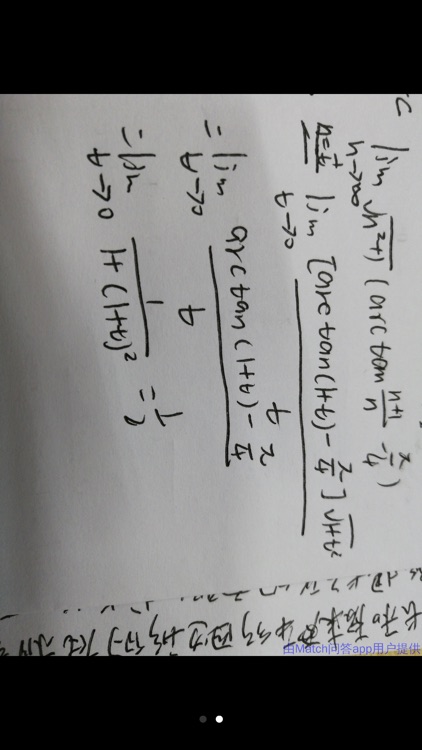 lim n→∞ √(n²+1) (arctan (n+1)/n - π/4)
n=1/t lim t→0 [arctan(1+t) - π/4]√(1+t²) / t
= lim t→0 (arctan(1+t) - π/4) / t
= lim t→0 1 / (1+(1+t)²) = 1/2
由Match问答app用户提供